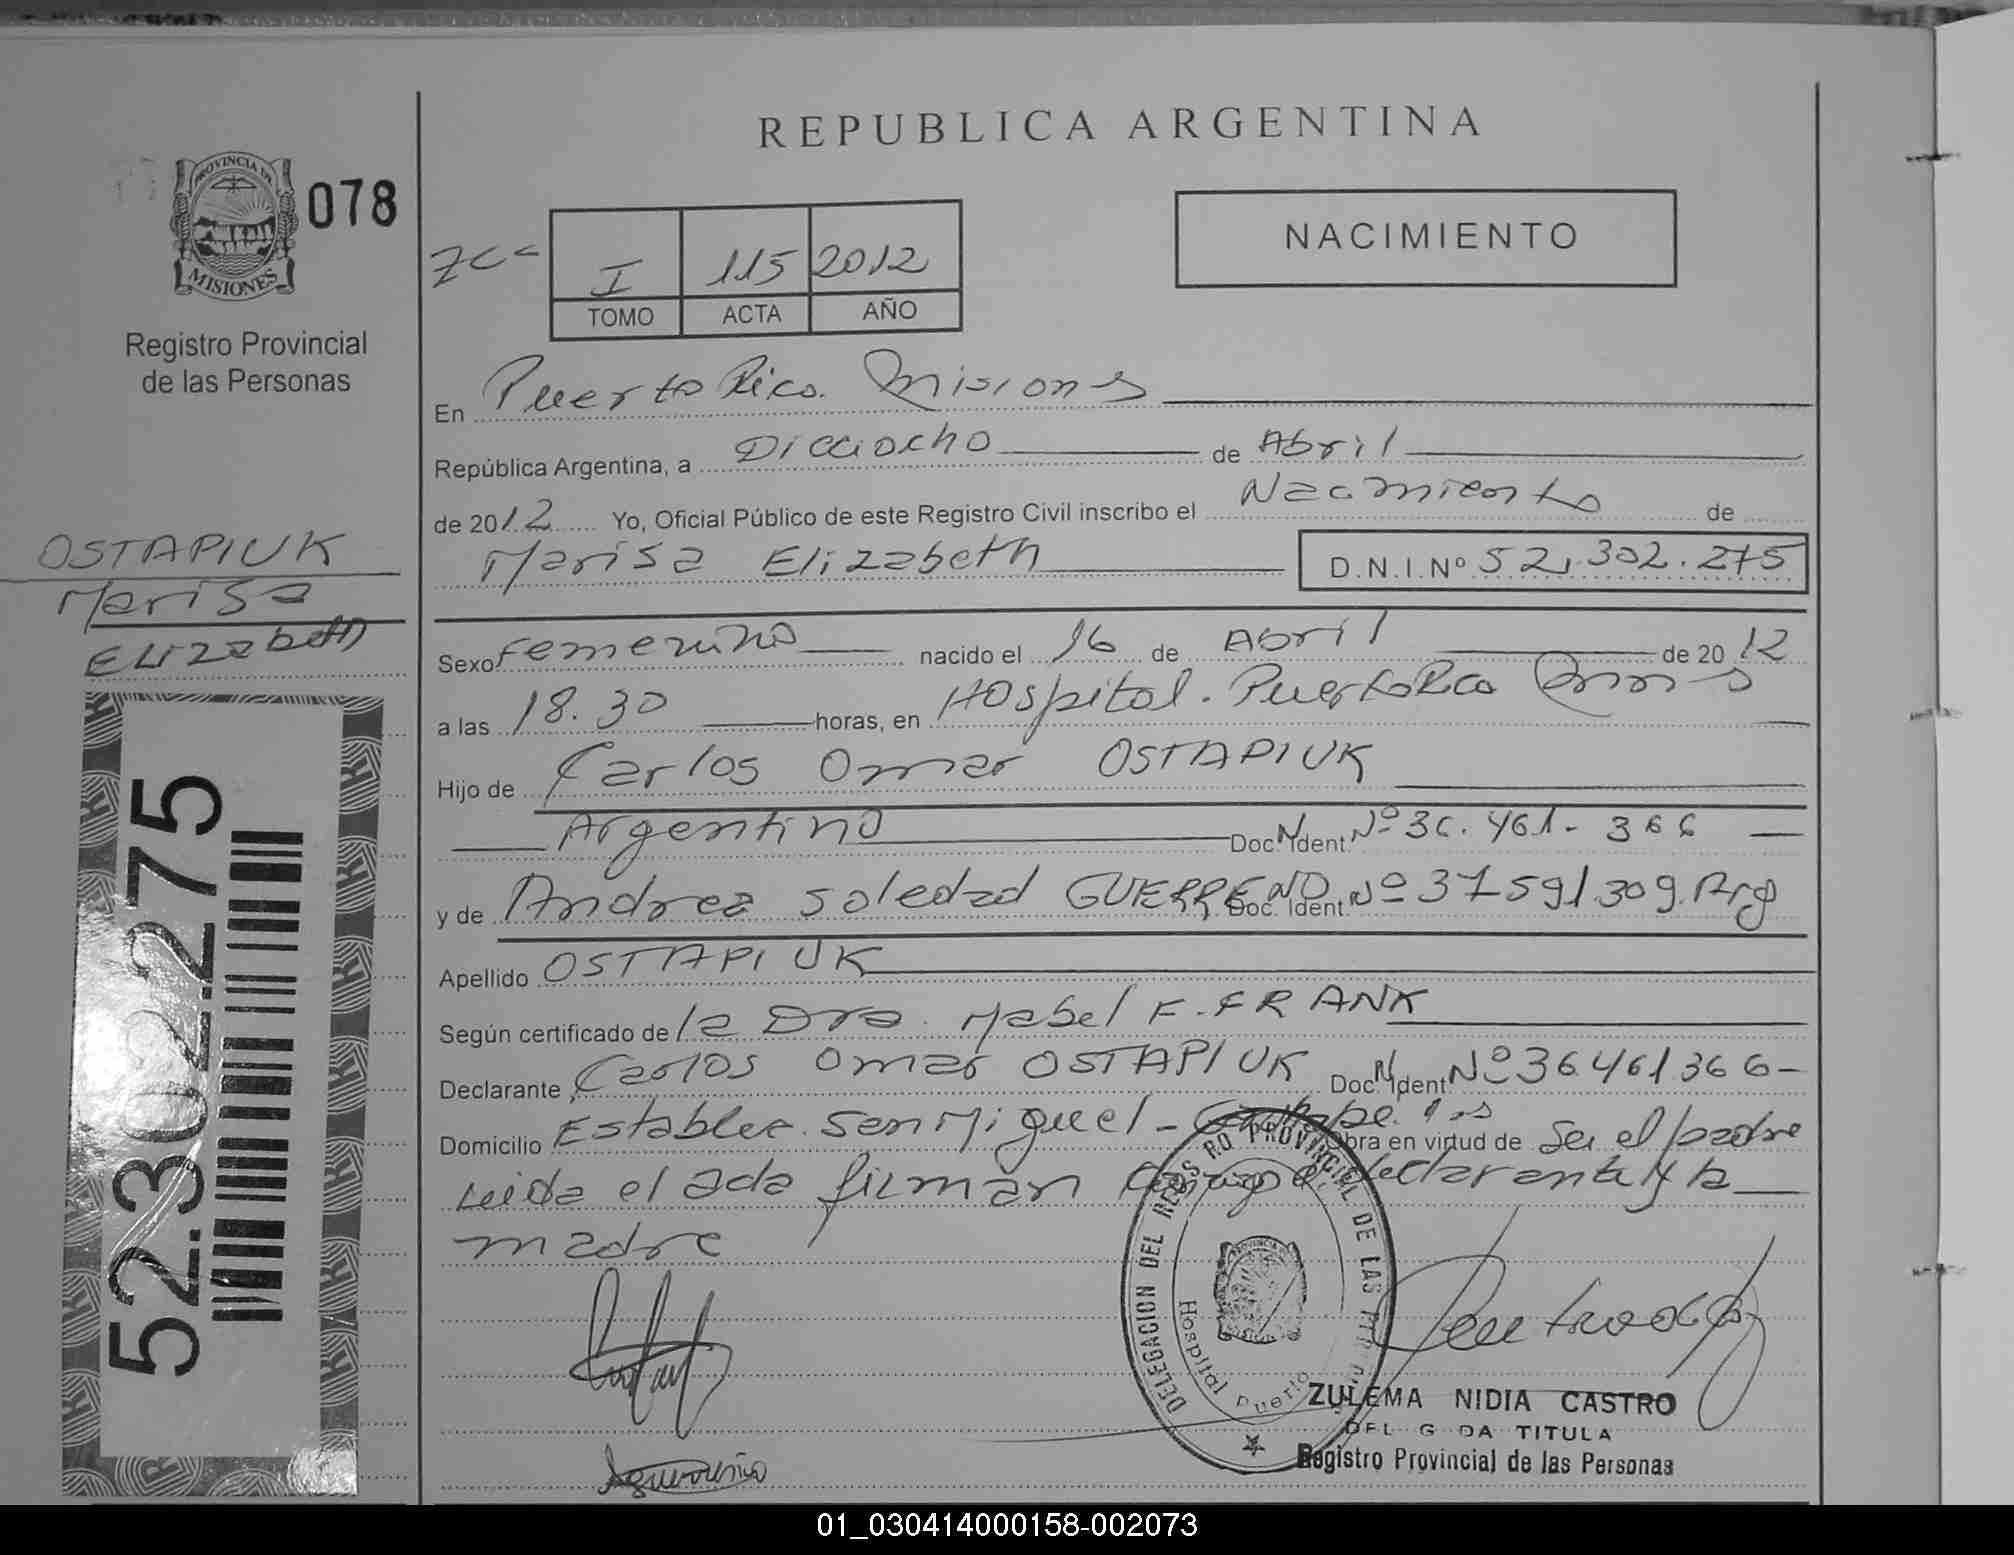 REPUBLICA ARGENTINA
PROVINCIA DE
MISIONES
078
Registro Provincial
de las Personas
I 115 2012
TOMO ACTA AÑO
NACIMIENTO
En Puerto Rico. Misiones
República Argentina, a Dieciocho de Abril
de 2012 Yo, Oficial Público de este Registro Civil inscribo el Nacimiento de
Marisa Elizabeth D.N.I.Nº 52.302.275
OSTAPIUK
Marisa
Elizabeth
Sexo Femenino nacido el 16 de Abril de 2012
a las 18.30 horas, en Hospital. Puerto Rico Mnes
Hijo de Carlos Omar OSTAPIUK
Argentino Doc. Ident. Nº 36.461.366
y de Andrea Soledad GUERRENO Doc. Ident. Nº 37591.309. Arg
Apellido OSTAPIUK
Según certificado de la Dra. Mabel F. FRANK
Declarante Carlos Omar OSTAPIUK Doc. Ident. Nº 36.461.366-
Domicilio San Miguel - obra en virtud de Ser el padre
Leida el acta firman declarante y la
madre
52.302.275
DELEGACION DEL REGISTRO PROVINCIAL DE LAS
Hospital Puerto
ZULEMA NIDIA CASTRO
TITULA
Registro Provincial de las Personas
01_030414000158-002073